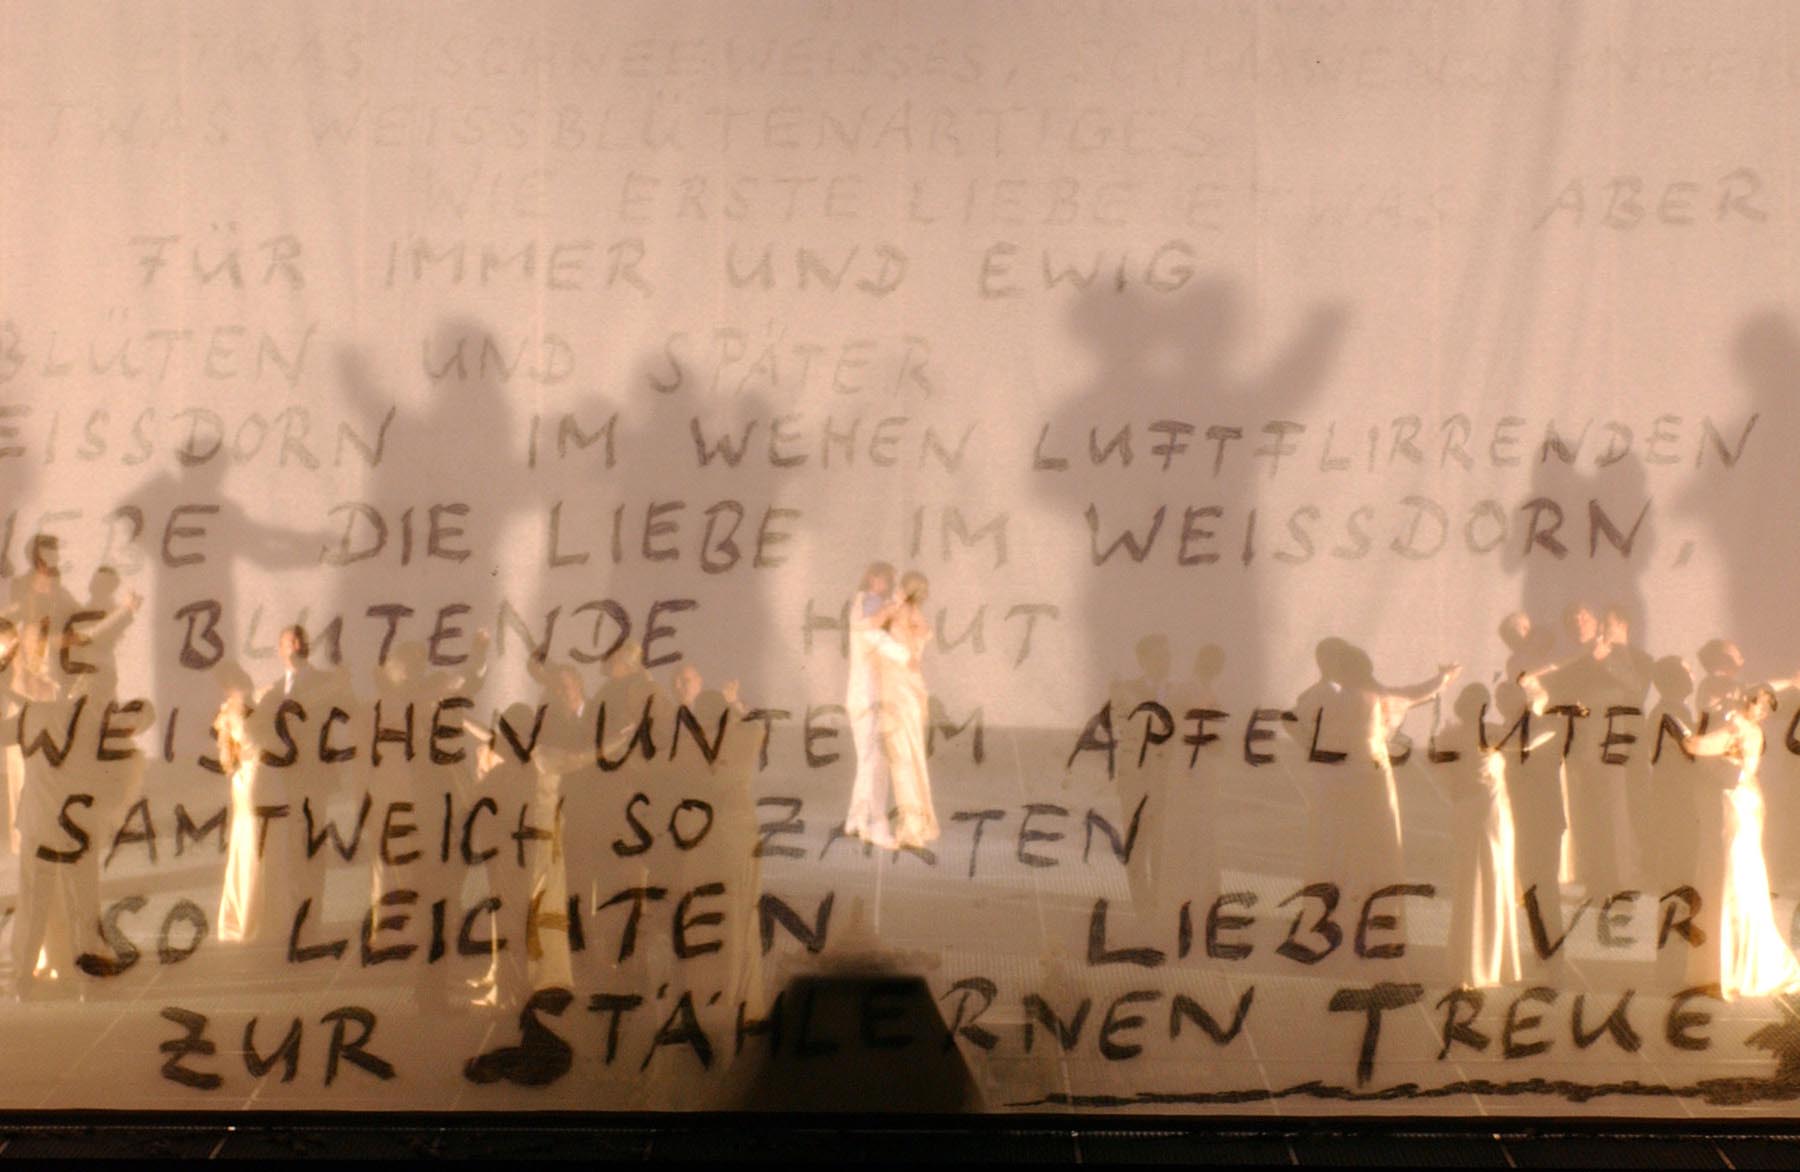 ETWAS SCHNEEWEISSES,
ETWAS WEISSBLÜTENARTIGES
WIE ERSTE LIEBE ETWAS ABER
FÜR IMMER UND EWIG
BLÜTEN UND SPÄTER
EISSDORN IM WEHEN LUFTFLIRRENDEN
IEBE DIE LIEBE IM WEISSDORN,
DIE BLUTENDE HAUT
WEISSCHEN UNTERM APFELBLÜTEN
SAMTWEICH SO ZARTEN
SO LEICHTEN LIEBE VER
ZUR STÄHLERNEN TREUE